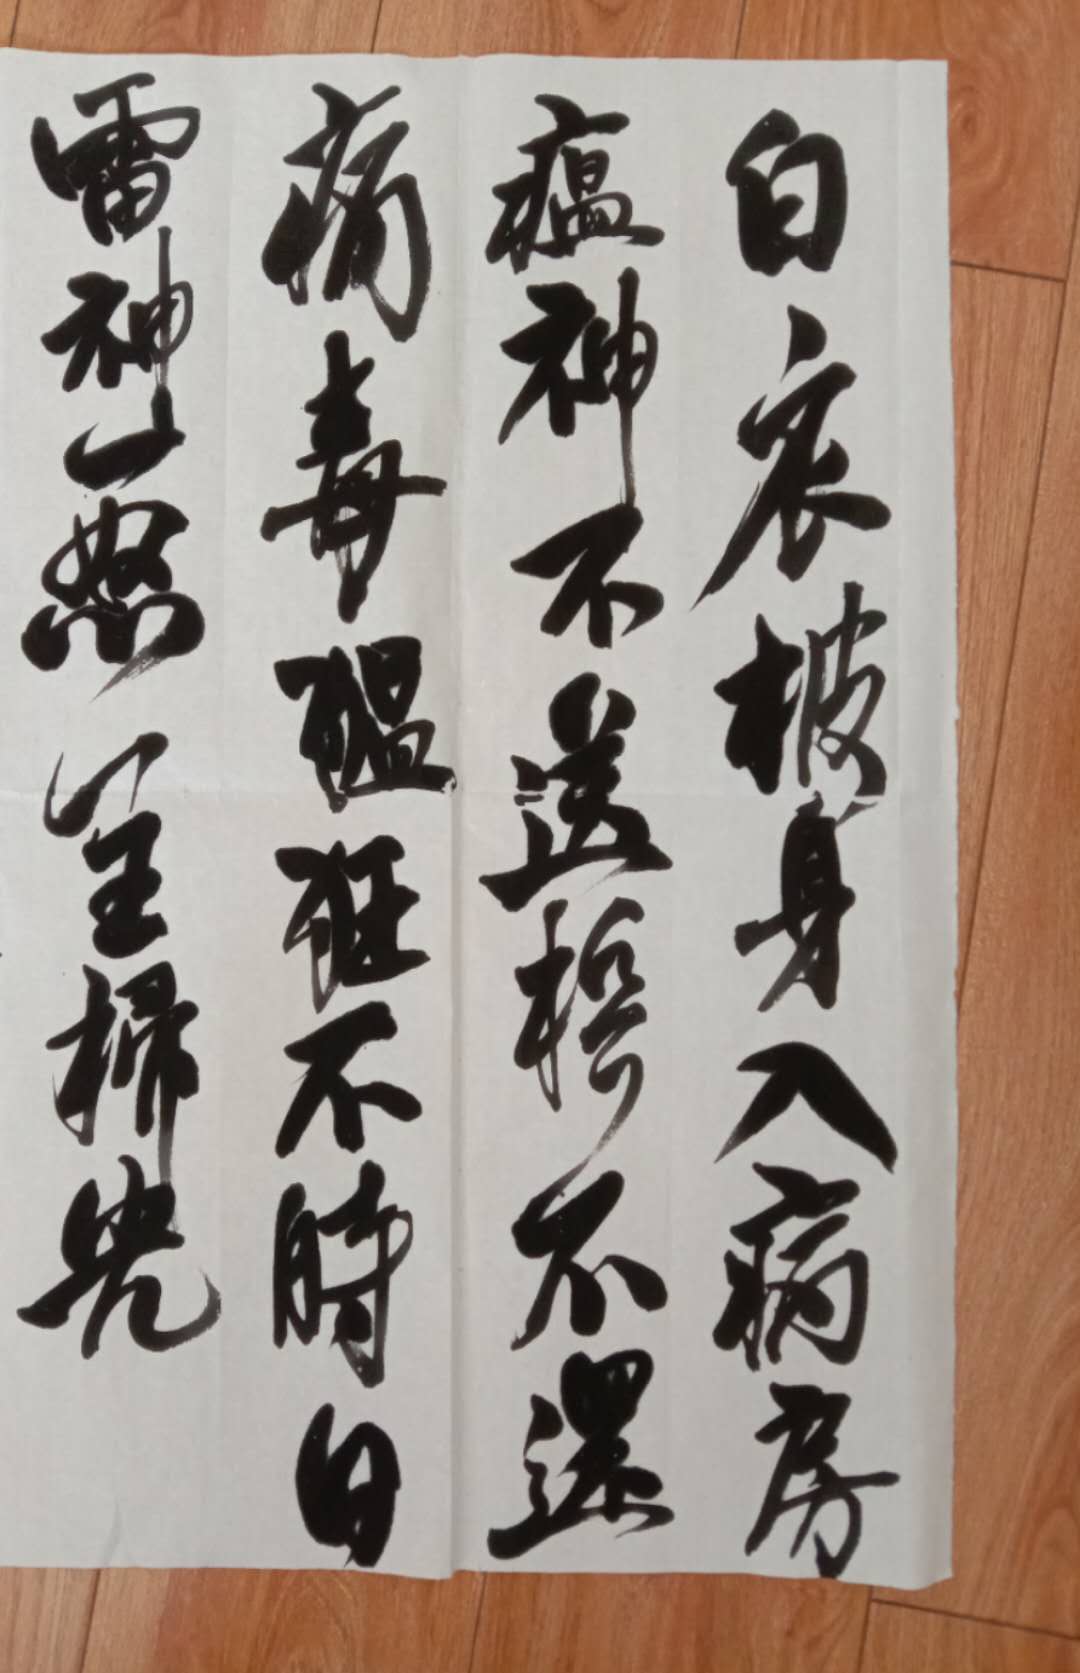 白衣披身入病房
瘟神不送不還
病毒猖狂不時日
雷神一怒全掃光